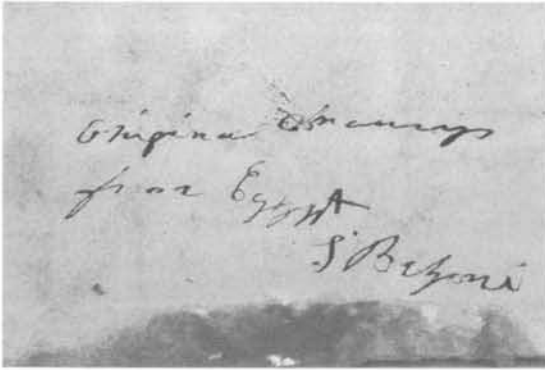 Original Drawings
from Egypt
S Belzoni